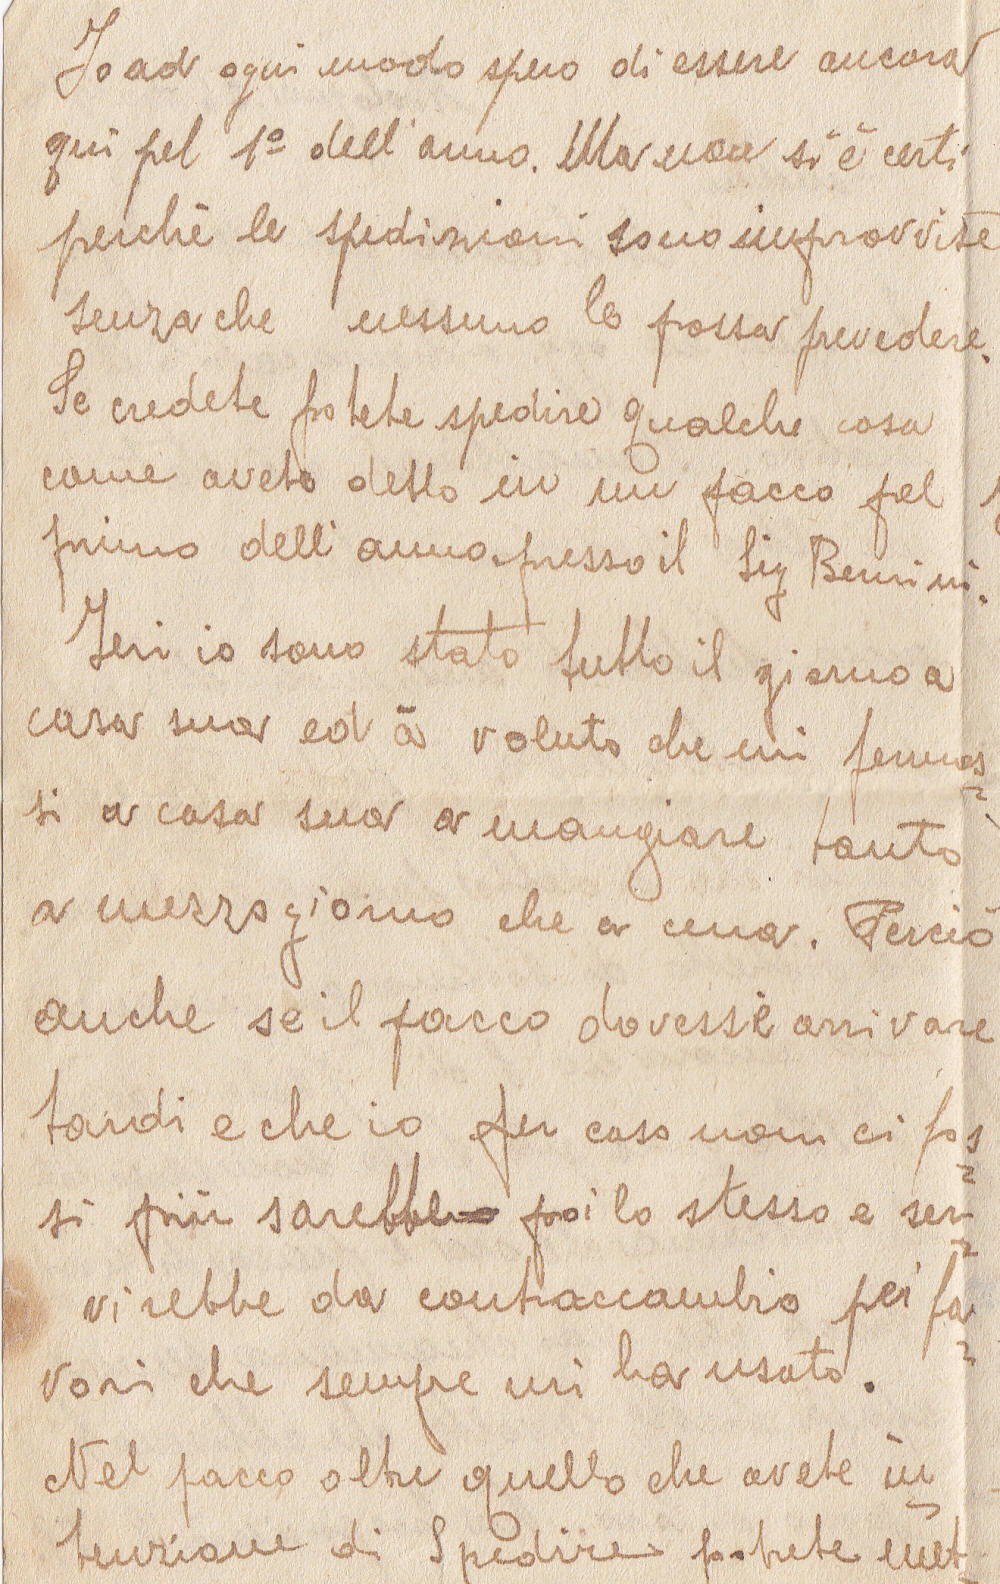 Io ad ogni modo spero di essere ancora
qui pel 1º dell'anno. Ma non si è certi
perchè le spedizioni sono improvvise
senza che nessuno lo possa prevedere.
Se credete potete spedire qualche cosa
come avete detto in un pacco pel
primo dell'anno presso il Sig
Ieri io sono stato tutto il giorno a
casa sua ed à voluto che mi fermas=
si a casa sua a mangiare tanto
a mezzogiorno che a cena. Perciò
anche se il pacco dovesse arrivare
tardi e che io per caso non ci fos=
si più sarebbe poi lo stesso e ser=
virebbe da contraccambio pei fa=
vori che sempre mi ha usato.
Nel pacco oltre quello che avete in=
tenzione di Spedire potete met=